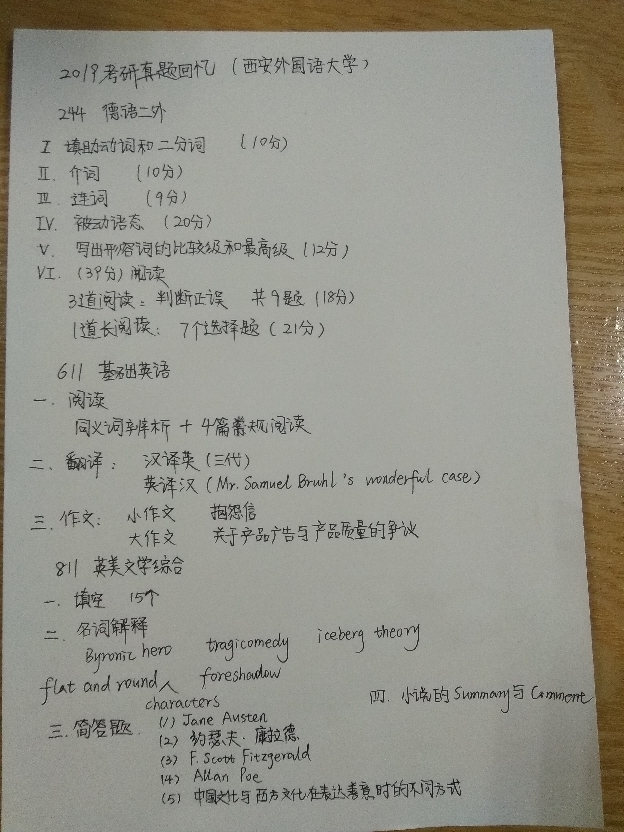 2019考研真题回忆 （西安外国语大学）
244 德语二外
I 填助动词和二分词 （10分）
II. 介词 （10分）
III. 连词 （9分）
IV. 被动语态 （20分）
V. 写出形容词的比较级和最高级（12分）
VI. （39分）阅读
3道阅读：判断正误 共9题（18分）
1道长阅读：7个选择题（21分）
611 基础英语
一. 阅读
同义词辨析 + 4篇常规阅读
二. 翻译： 汉译英（三代）
英译汉（Mr. Samuel Bruhl's wonderful case）
三. 作文： 小作文 抱怨信
大作文 关于产品广告与产品质量的争议
811 英美文学综合
一. 填空 15个
二. 名词解释
Byronic hero tragicomedy iceberg theory
flat and round 人 foreshadow
characters
四. 小说的Summary与Comment
三. 简答题. (1) Jane Austen
(2) 约瑟夫·康拉德
(3) F. Scott Fitzgerald
(4) Allan Poe
(5) 中国文化与西方文化在表达善意时的不同方式